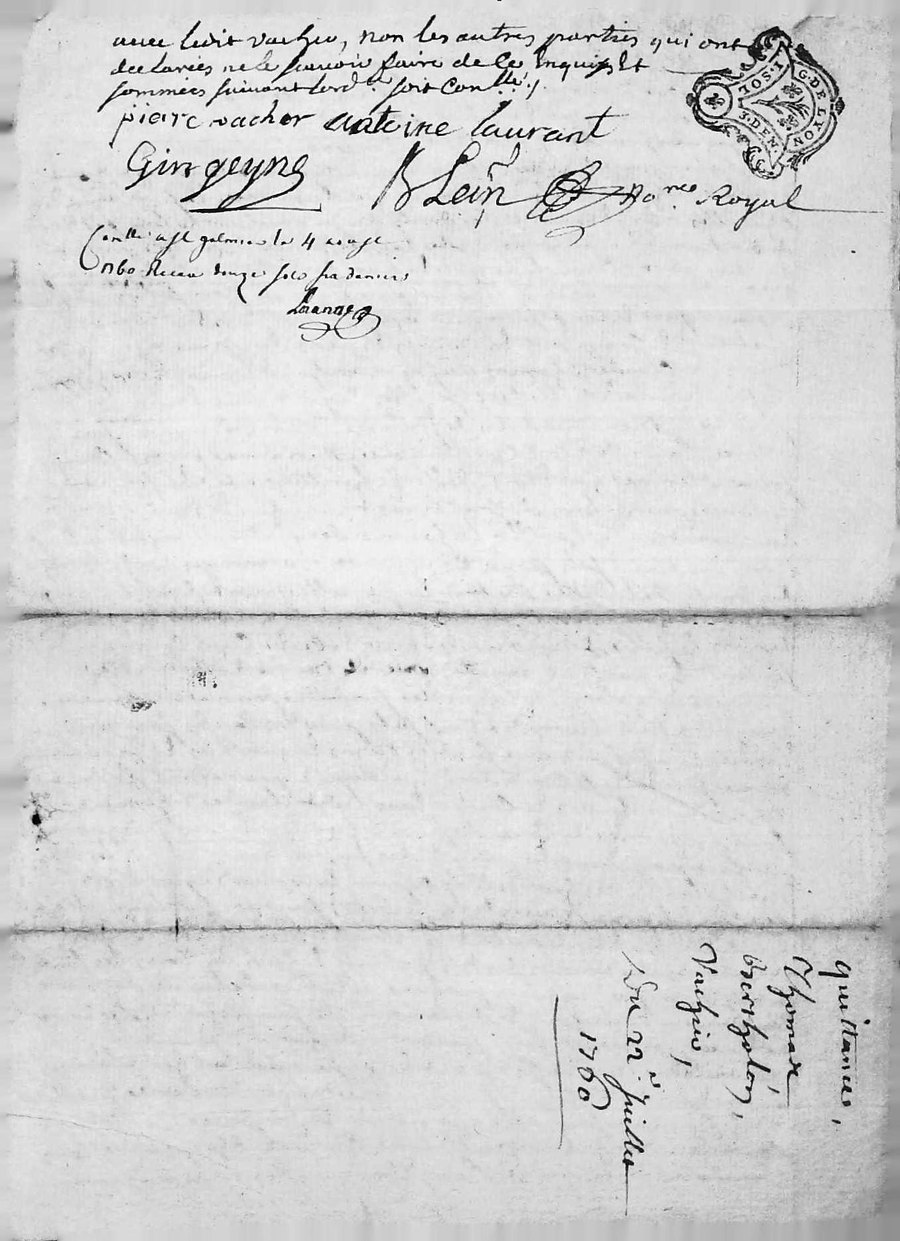 avec ledit vachер, non les autres parties qui ont
declarées ne le scavoir faire de ce Enquis Et
sommées suivant lord.ce soit Con.llé
pierre vacher antoine laurant
Gingeyne
BLein No.re Royal
Con.llé a st galmier le 4 aoust
1760 Receu douze sols six deniers
G. DE LYON
1. SOL.
J. DEN.
quittance,
Thomas
Berthollon,
Vacher,
Du 22.e Juillet
1760